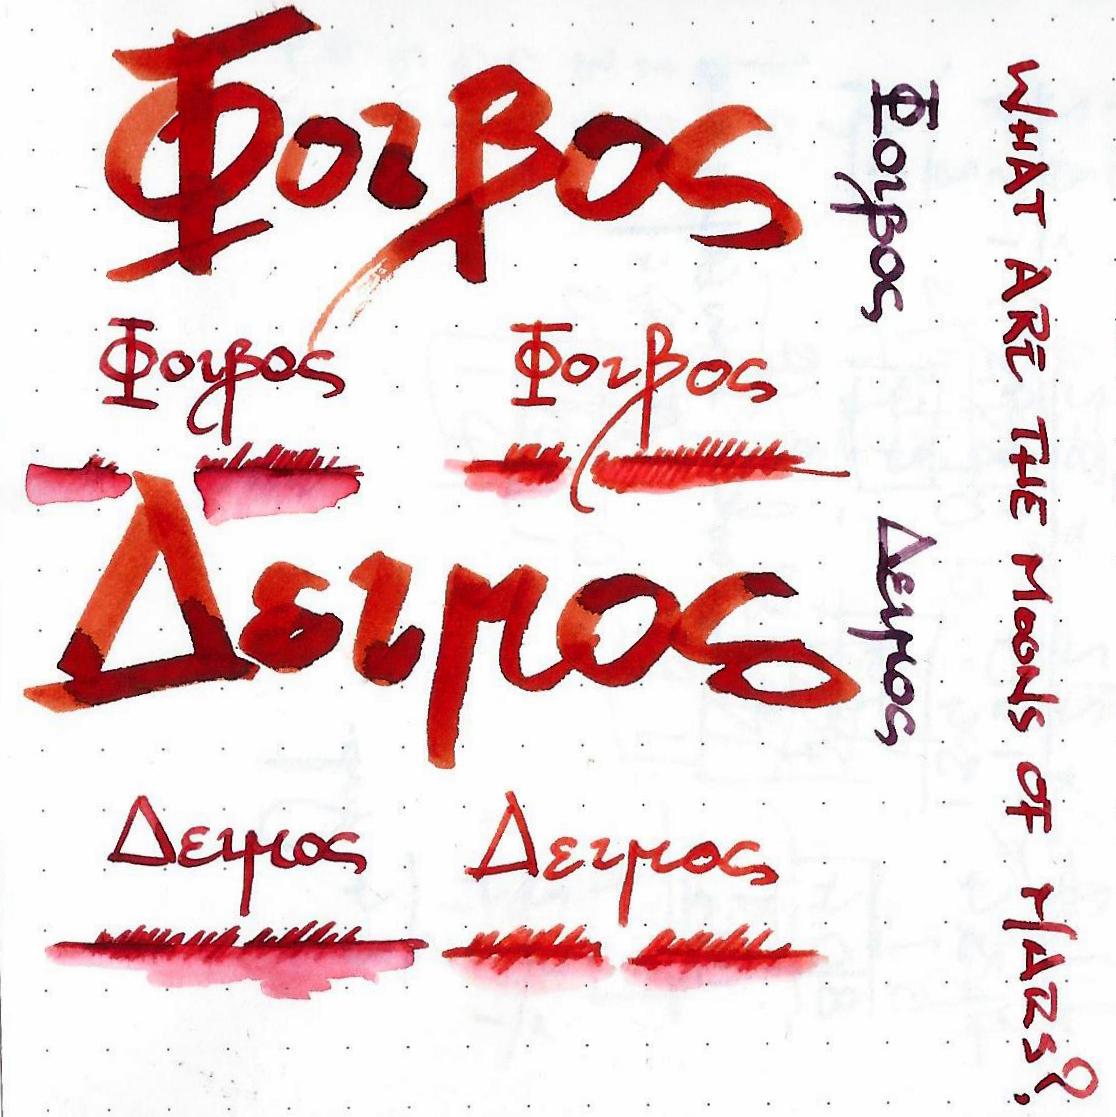 Φοιβος
Φοιβος Φοιβος
Δειμος
Δειμος Δειμος
Φοιβος Δειμος
WHAT ARE THE MOONS OF MARS?